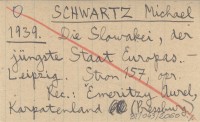 SCHWARTZ Michael
1939. Die Slowakei, der
jüngste Staat Europas.-
Leipzig. 157,
Rec.: Emeritzy Aurel,
Karpatenland (Presburg)